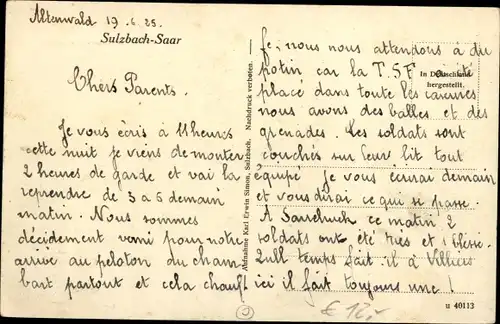 Altenwald 19.6.25.
Sulzbach-Saar
Chers Parents.
Je vous écris à 11 heures
cette nuit je viens de monter
2 heures de garde et vai la
reprendre de 3 a 6 demain
matin. Nous sommes
décidement venu pour notre
arrivé au peloton du cham
bart partout et cela chauf
fe, nous nous attendons à du
potin car la T.S.F a été
place dans toute les casernes
nous avons des balles et des
grenades. Les soldats sont
couchés sur leur lit tout
équipé Je vous ecrirai demain
et vous dirai ce qui se passe.
A Sarrebruck ce matin 2
soldats ont été tués et 1 blessé.
Quel temps fait il à Villiers
ici il fait toujours une !
In Deutschland
hergestellt.
Aufnahme Karl Erwin Simon, Sulzbach. Nachdruck verboten.
u 40113
£ 12,-